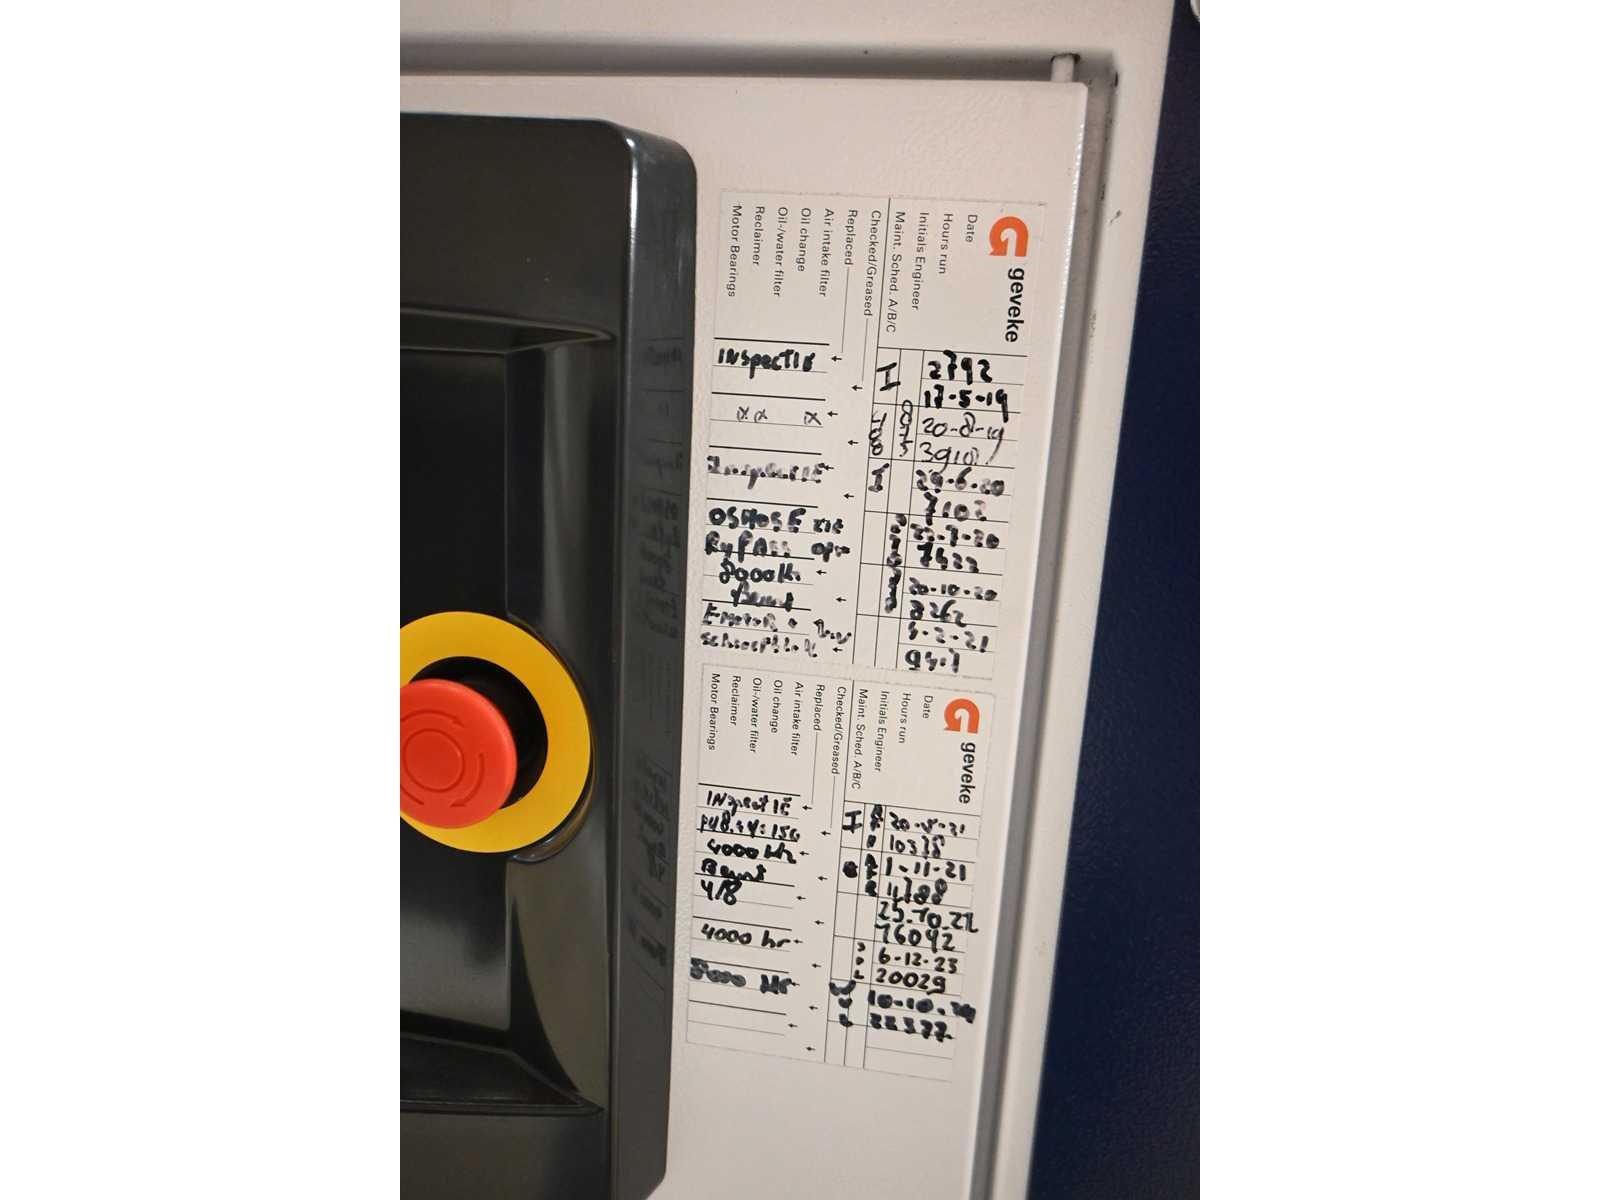 geveke
Date
Hours run
Initials Engineer
Maint. Sched. A/B/C
Checked/Greased
Replaced
Air intake filter
Oil change
Oil-/water filter
Reclaimer
Motor Bearings
2792
17-5-19
INSpectIE
20-8-19
3910
1000
xx x
29-6-20
7102
I
InspectIE
22-7-20
OSMOSE
ByPASS
20-10-20
8262
8000 Hr
Beurt
9-2-21
geveke
Date
Hours run
Initials Engineer
Maint. Sched. A/B/C
Checked/Greased
Replaced
Air intake filter
Oil change
Oil-/water filter
Reclaimer
Motor Bearings
10338
I
INspectIE
1-11-21
11788
4000 Hr
Beurt
25.10.22
16042
4/8
6-12-23
20029
4000 hr
10-10.24
22377